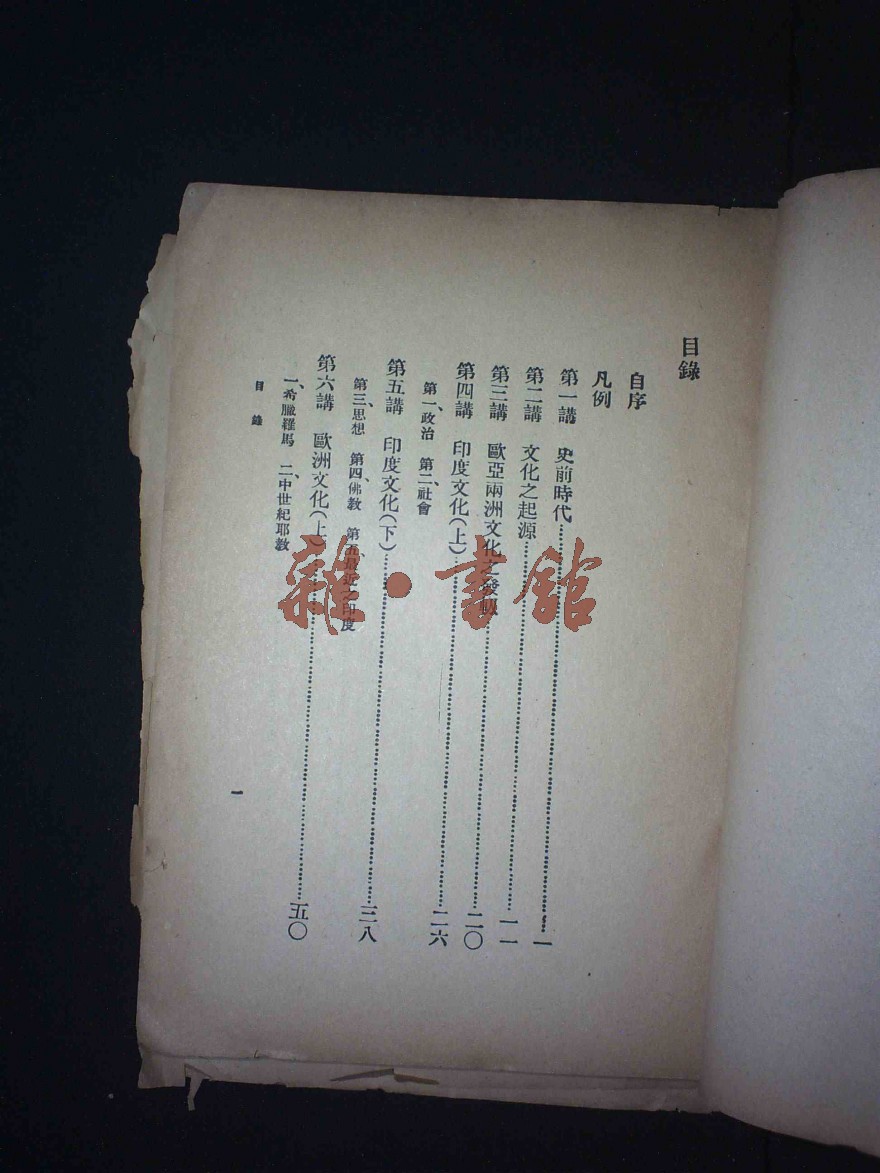 目錄
自序
凡例
第一講 史前時代……一
第二講 文化之起源……一一
第三講 歐亞兩洲文化之發軔……二〇
第四講 印度文化(上)……二六
第一、政治 第二、社會
第五講 印度文化(下)……三八
第三、思想 第四、佛教 第五、最近之印度
第六講 歐洲文化(上)……五〇
一、希臘羅馬 二、中世紀耶教
目錄
一
雜·書館